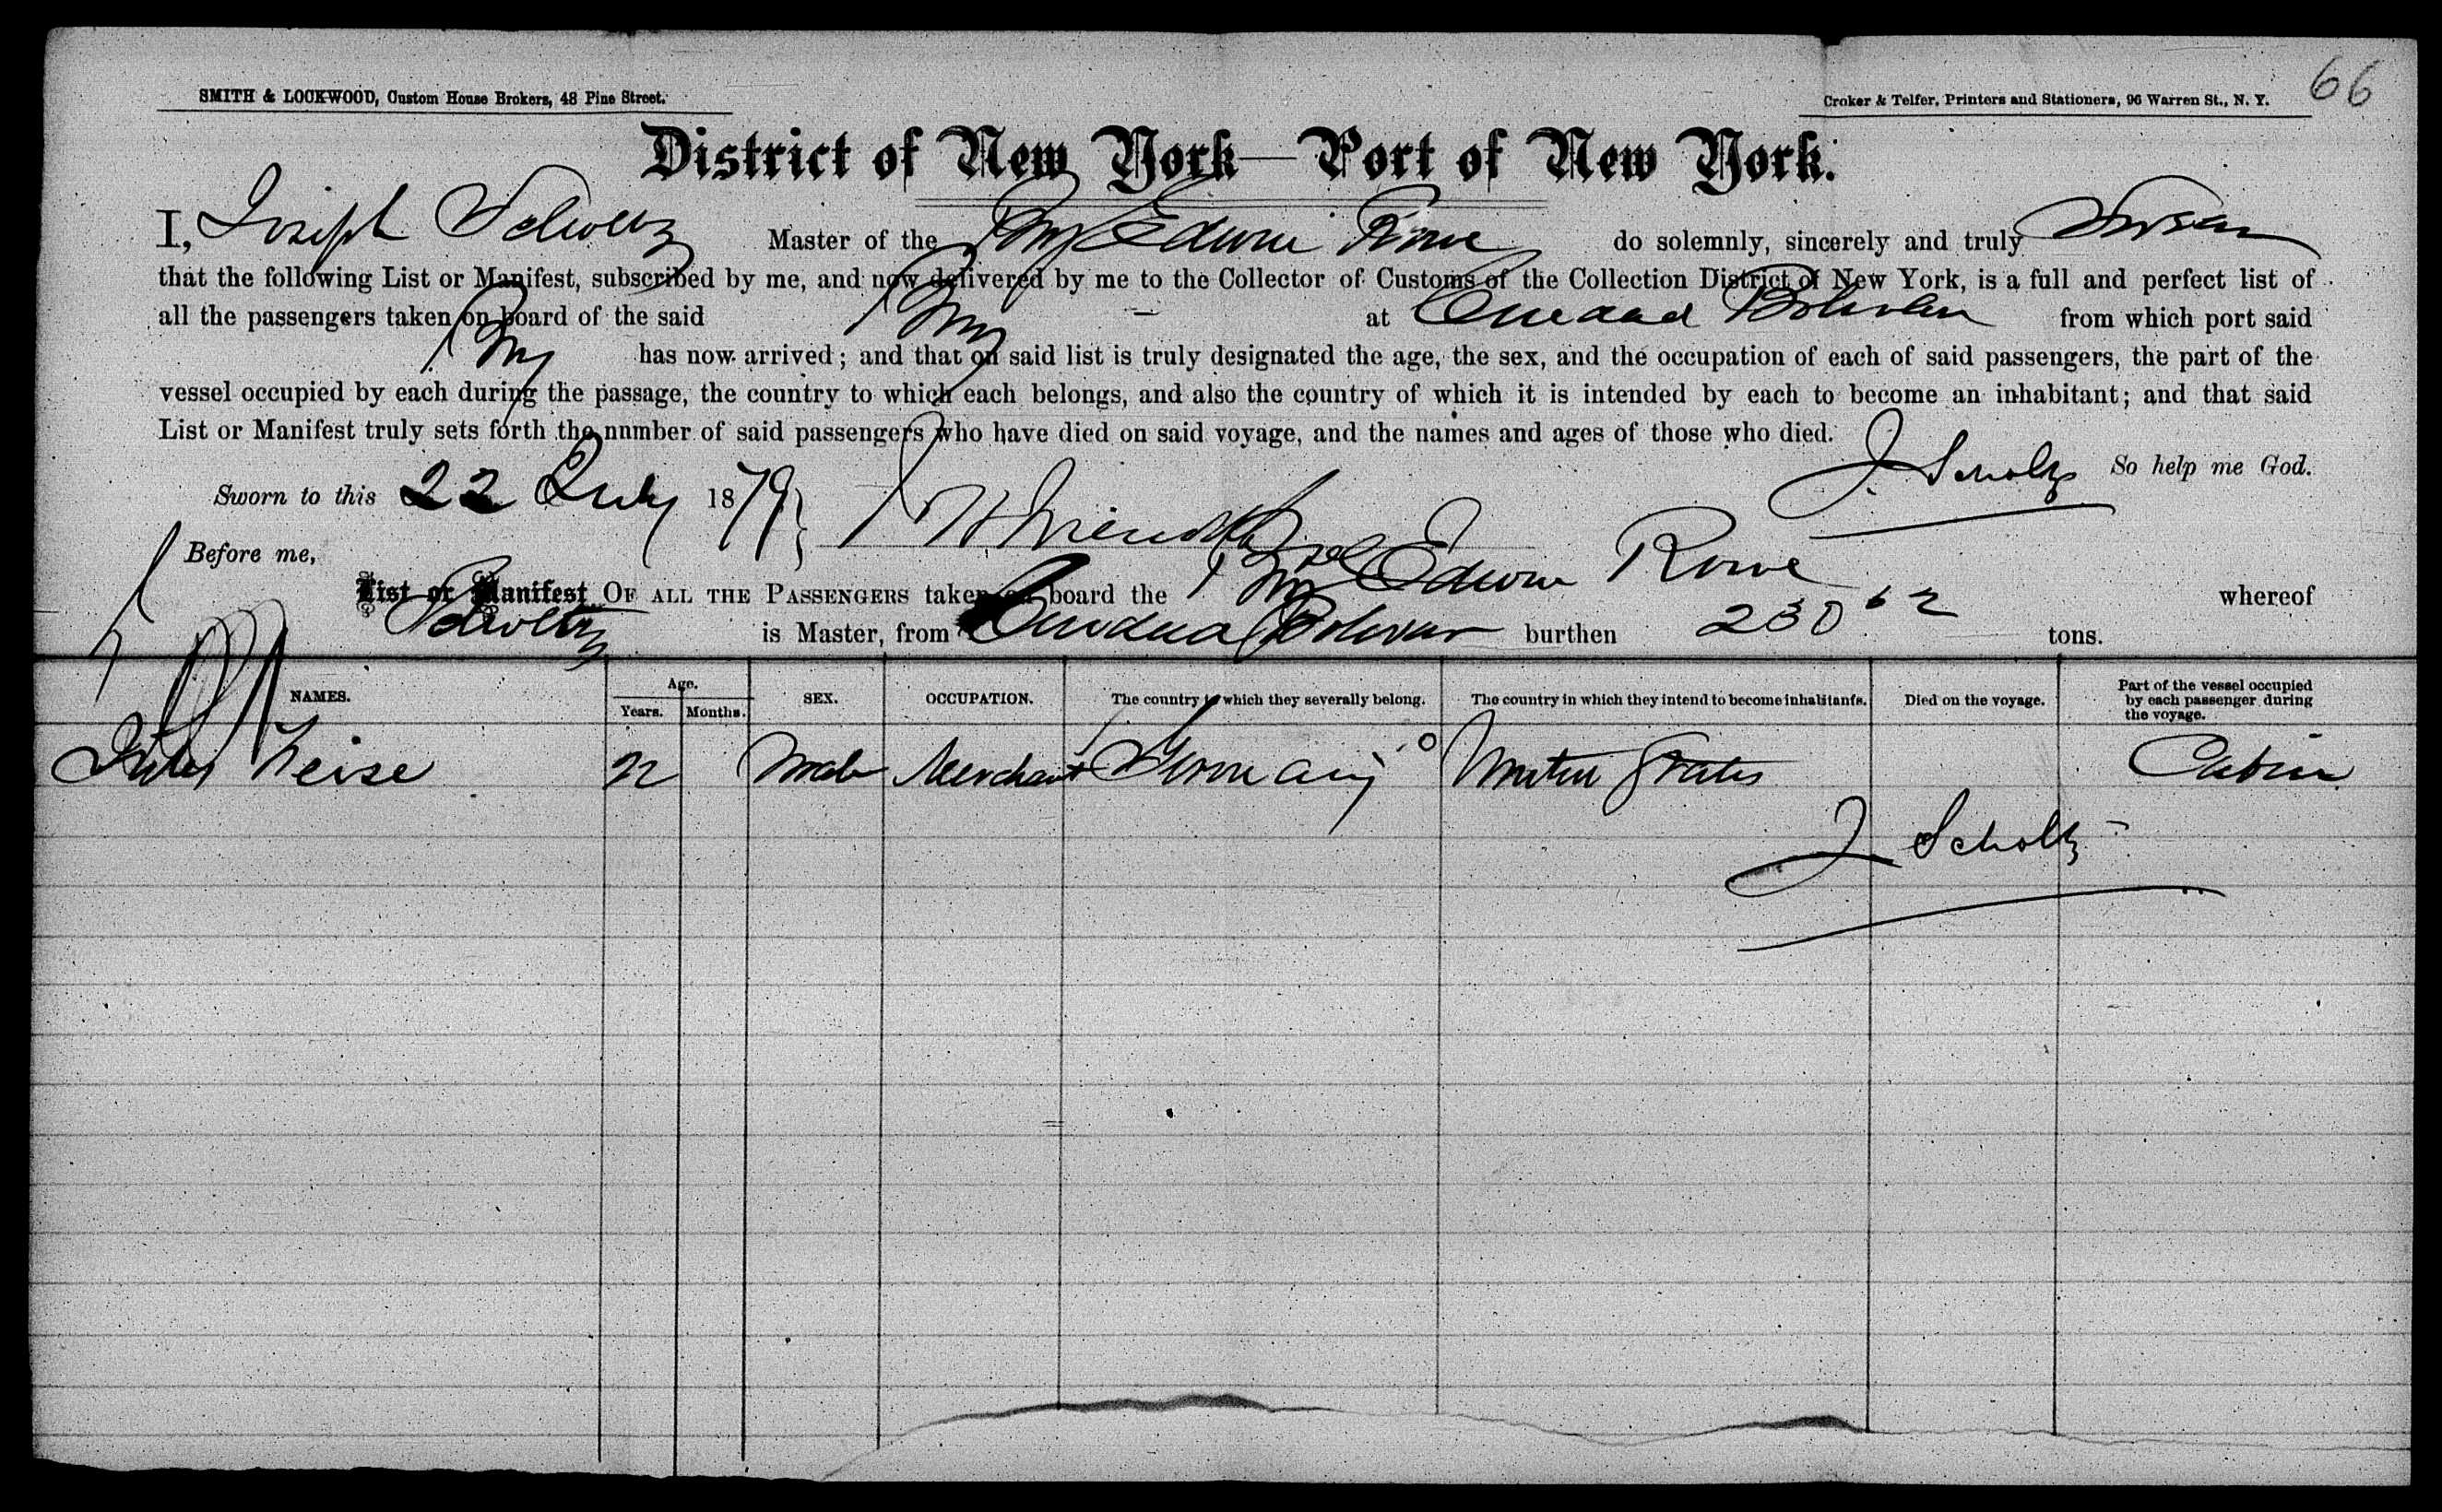 66
SMITH & LOCKWOOD, Custom House Brokers, 48 Pine Street.
Croker & Telfer, Printers and Stationers, 96 Warren St., N. Y.
District of New York—Port of New York.
I, Joseph Scholtz Master of the Edwin Rowe do solemnly, sincerely and truly Swear
that the following List or Manifest, subscribed by me, and now delivered by me to the Collector of Customs of the Collection District of New York, is a full and perfect list of
all the passengers taken on board of the said at Ciudad Bolivar from which port said
has now arrived; and that on said list is truly designated the age, the sex, and the occupation of each of said passengers, the part of the
vessel occupied by each during the passage, the country to which each belongs, and also the country of which it is intended by each to become an inhabitant; and that said
List or Manifest truly sets forth the nnmber of said passengers who have died on said voyage, and the names and ages of those who died.
J. Scholtz So help me God.
Sworn to this 22 July 1879
Before me,
List or Manifest OF ALL THE PASSENGERS taken on board the Edwin Rowe whereof
Scholtz is Master, from Ciudad Bolivar burthen 230 62 tons.
NAMES. Age. Years. Months. SEX. OCCUPATION. The country to which they severally belong. The country in which they intend to become inhabitants. Died on the voyage. Part of the vessel occupied by each passenger during the voyage.
Jules Neise 22 Male Merchant Germany United States Cabin
J Scholtz